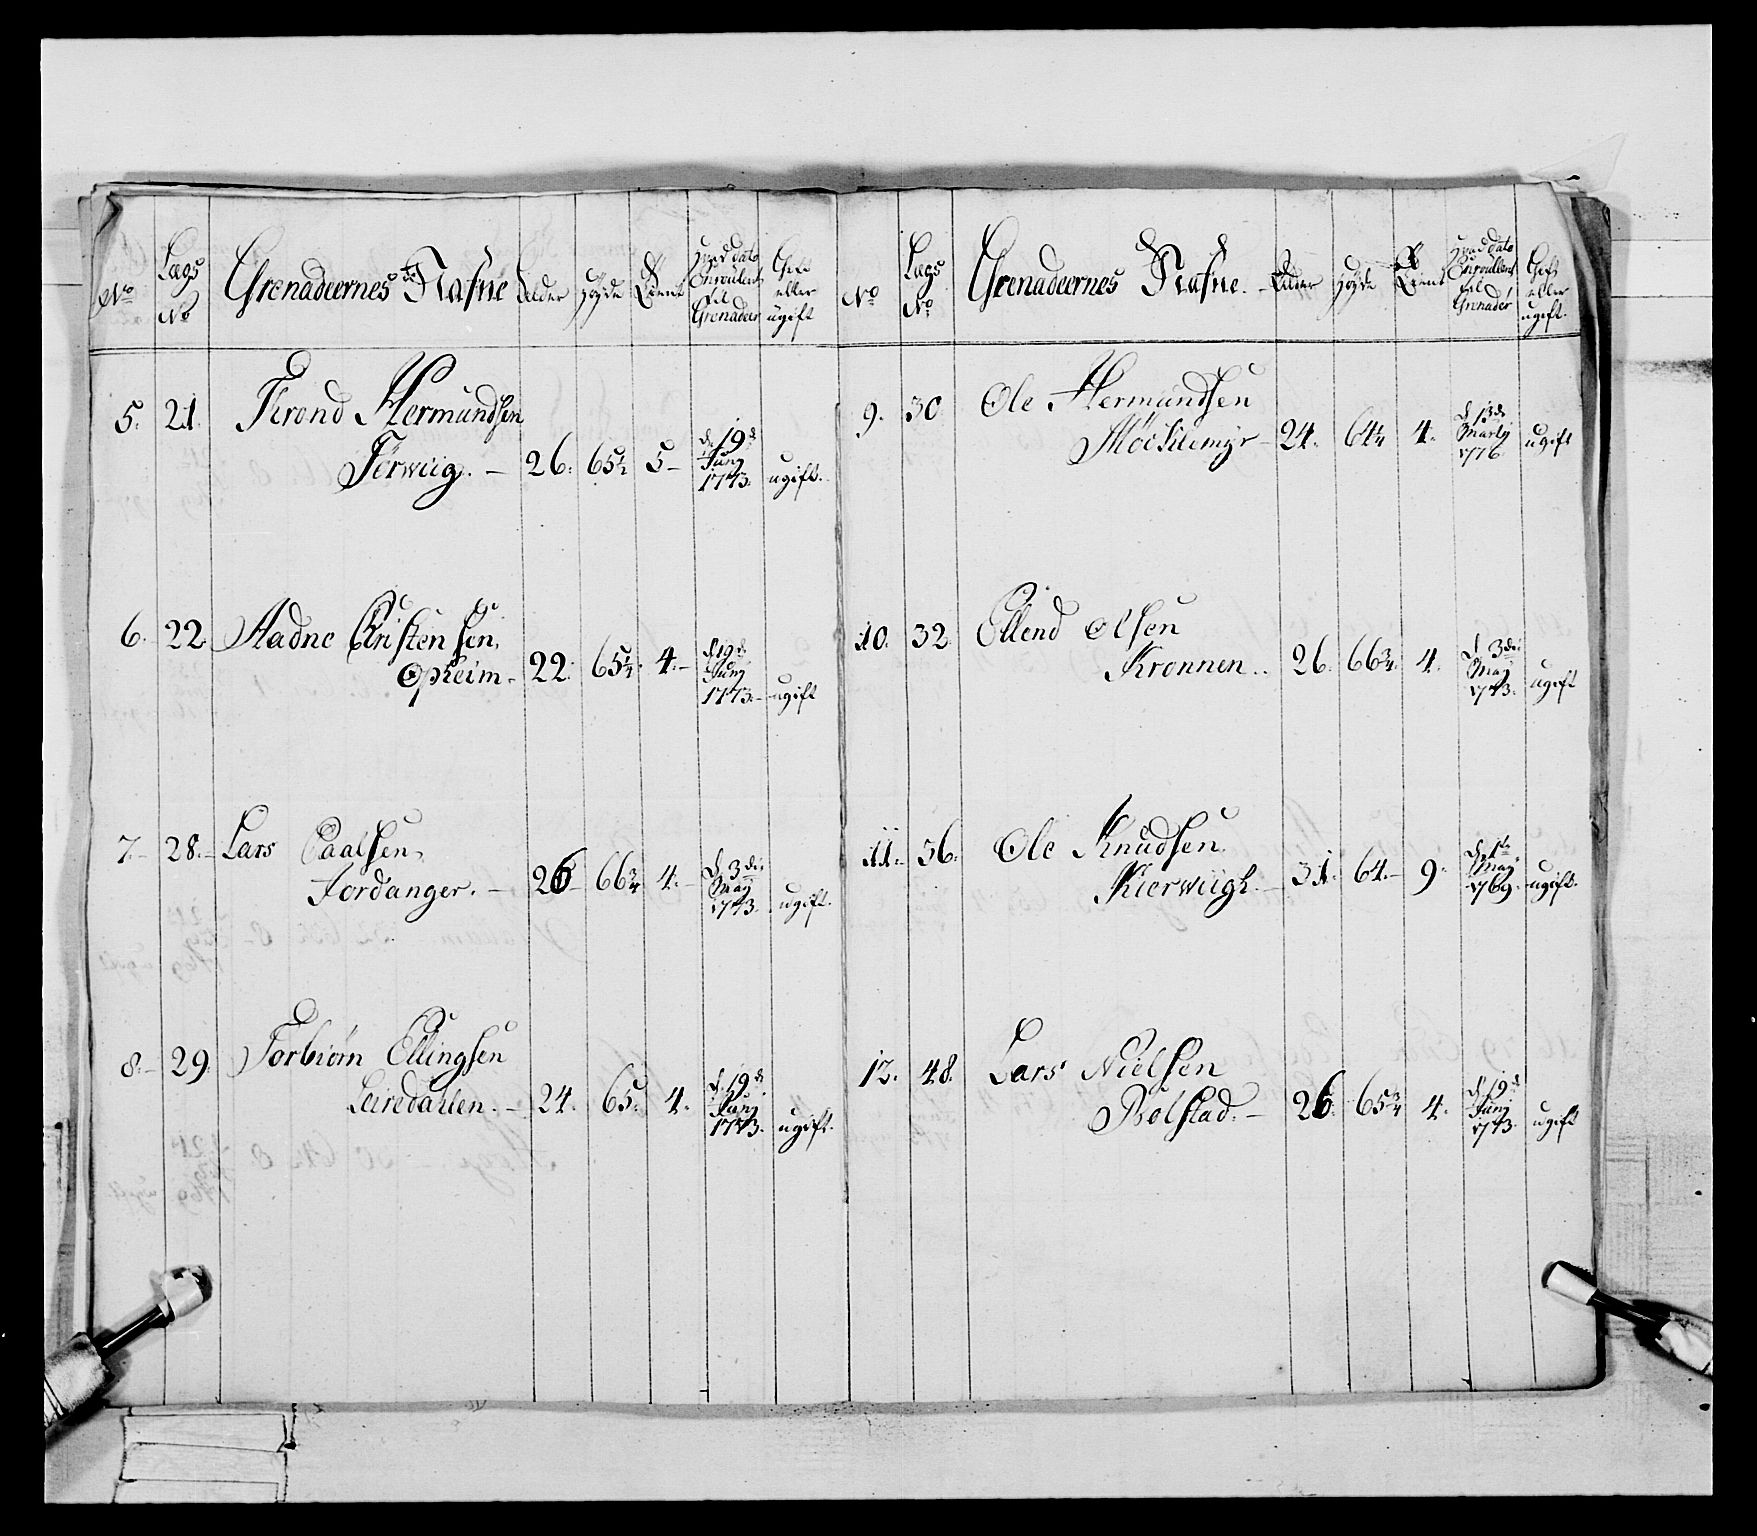 No Lægs No Grenadeernes Nafne Alder Høyde Tient Hvad dato Enroulent til Grenadeer Gift eller ugift
5. 21. Trond Hermundsen
Tørwiig. — 26. 65½ 5 — d. 19de Juny 1773. ugift.
6. 22 Aadne Christensen,
Opheim. 22. 65¼ 4. — d 19de Juny 1773. — ugift
7. — 28. — Lars Paalsen,
Jordanger. — 26 66¾ 4. — d. 3die May 1773. ugift.
8. — 29. Torbiørn Ellingsen
Leiredahlen. — 24. 65. 4. d. 19de Juny 1773. ugift.
No Lægs No Grenadeernes Nafne. Alder Høyde Tient Hvad dato Enroullert til Grenader Gift eller ugift.
9. 30 Ole Hermundsen
Mochlemyr — 24. 64¼ 4. d. 13de Marty 1776 ugift
10. 32 Ellend Olsen
Kronnen. . 26. 66¾ 4. d. 3die May 1773. ugift
11. 36. Ole Knudsen
Kierwiigh. — 31. 64. — 9. d. 1te May 1769. ugift.
12. 48. Lars Nielsen
Rolstad. — 26. 65¾ 4. d. 19de Juny 1773. ugift